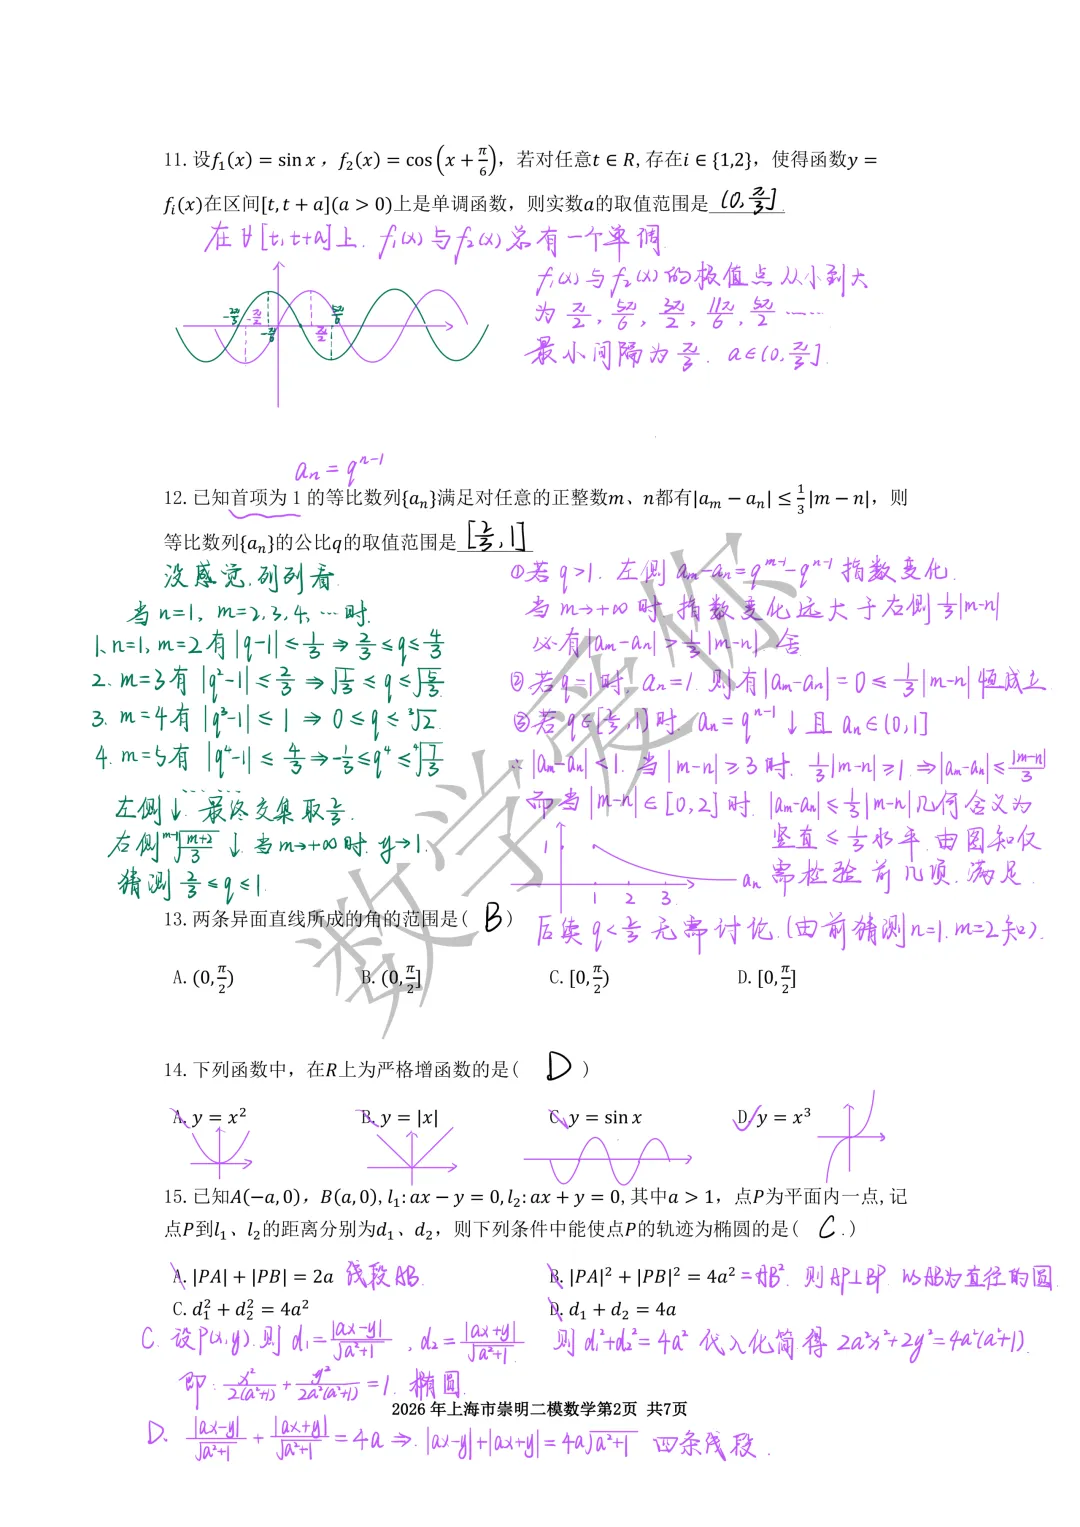 11.设f₁(x) = sin x，f₂(x) = cos(x + π/6)，若对任意t ∈ R,存在i ∈ {1,2}，使得函数y =
fᵢ(x)在区间[t, t + a](a > 0)上是单调函数，则实数a的取值范围是 (0, π/3]
在∀[t, t+a]上. f₁(x)与f₂(x)总有一个单调.
f₁(x)与f₂(x)的极值点从小到大
为 π/2, 5π/6, 3π/2, 11π/6, 5π/2 ……
最小间隔为 π/3. a∈(0, π/3].
-2π/3 -π/2 -π/6 π/2 5π/6
aₙ = qⁿ⁻¹
12.已知首项为 1 的等比数列{aₙ}满足对任意的正整数m、n都有|aₘ − aₙ| ≤ 1/3 |m − n|，则
等比数列{aₙ}的公比q的取值范围是 [2/3, 1]
没感觉.列列看.
当 n=1, m=2,3,4, …时.
1. n=1, m=2有 |q-1| ≤ 1/3 ⇒ 2/3 ≤ q ≤ 4/3
2. m=3有 |q²-1| ≤ 2/3 ⇒ √(1/3) ≤ q ≤ √(5/3)
3. m=4有 |q³-1| ≤ 1 ⇒ 0 ≤ q ≤ ³√2.
4. m=5有 |q⁴-1| ≤ 4/3 ⇒ -1/3 ≤ q⁴ ≤ ⁴√(7/3)
……
左侧↓. 最终交集取2/3.
右侧 ᵐ⁻¹√((m+2)/3) ↓. 当m→+∞时. y→1.
猜测 2/3 ≤ q ≤ 1.
①若 q>1. 左侧 aₘ-aₙ = qᵐ⁻¹-qⁿ⁻¹ 指数变化.
当 m→+∞时. 指数变化远大于右侧 1/3|m-n|
必有|aₘ-aₙ| > 1/3|m-n| 舍
②若q=1时. aₙ=1. 则有|aₘ-aₙ| = 0 ≤ 1/3|m-n|恒成立.
③若 q∈[2/3, 1)时. aₙ = qⁿ⁻¹ ↓ 且 aₙ∈(0,1]
∴ |aₘ-aₙ| < 1. 当 |m-n| ≥ 3时. 1/3|m-n| ≥ 1. ⇒ |aₘ-aₙ| ≤ |m-n|/3
而当 |m-n| ∈ [0,2] 时. |aₘ-aₙ| ≤ 1/3|m-n|几何含义为
竖直 ≤ 1/3 水平. 由图知仅
需检验前几项. 满足.
1 1 2 3 aₙ
后续 q<2/3 无需讨论. (由前猜测n=1. m=2知).
13.两条异面直线所成的角的范围是( B )
A. (0, π/2) B. (0, π/2] C. [0, π/2) D. [0, π/2]
14.下列函数中，在R上为严格增函数的是( D )
A. y = x² B. y = |x| C. y = sin x D. y = x³
15.已知A(−a, 0)，B(a, 0), l₁: ax − y = 0, l₂: ax + y = 0,其中a > 1，点P为平面内一点,记
点P到l₁、l₂的距离分别为d₁、d₂，则下列条件中能使点P的轨迹为椭圆的是( C .)
A. |PA| + |PB| = 2a 线段AB. B. |PA|² + |PB|² = 4a² = AB². 则AP⊥BP. 以AB为直径的圆.
C. d₁² + d₂² = 4a² D. d₁ + d₂ = 4a
C. 设P(x,y). 则 d₁ = |ax-y|/√(a²+1), d₂ = |ax+y|/√(a²+1) 则 d₁²+d₂² = 4a² 代入化简得 2a²x²+2y² = 4a²(a²+1).
即: x²/2(a²+1) + y²/2a²(a²+1) = 1. 椭圆.
2026 年上海市崇明二模数学第2页 共7页
D. |ax-y|/√(a²+1) + |ax+y|/√(a²+1) = 4a ⇒. |ax-y|+|ax+y| = 4a√(a²+1) 四条线段.
数学爱你